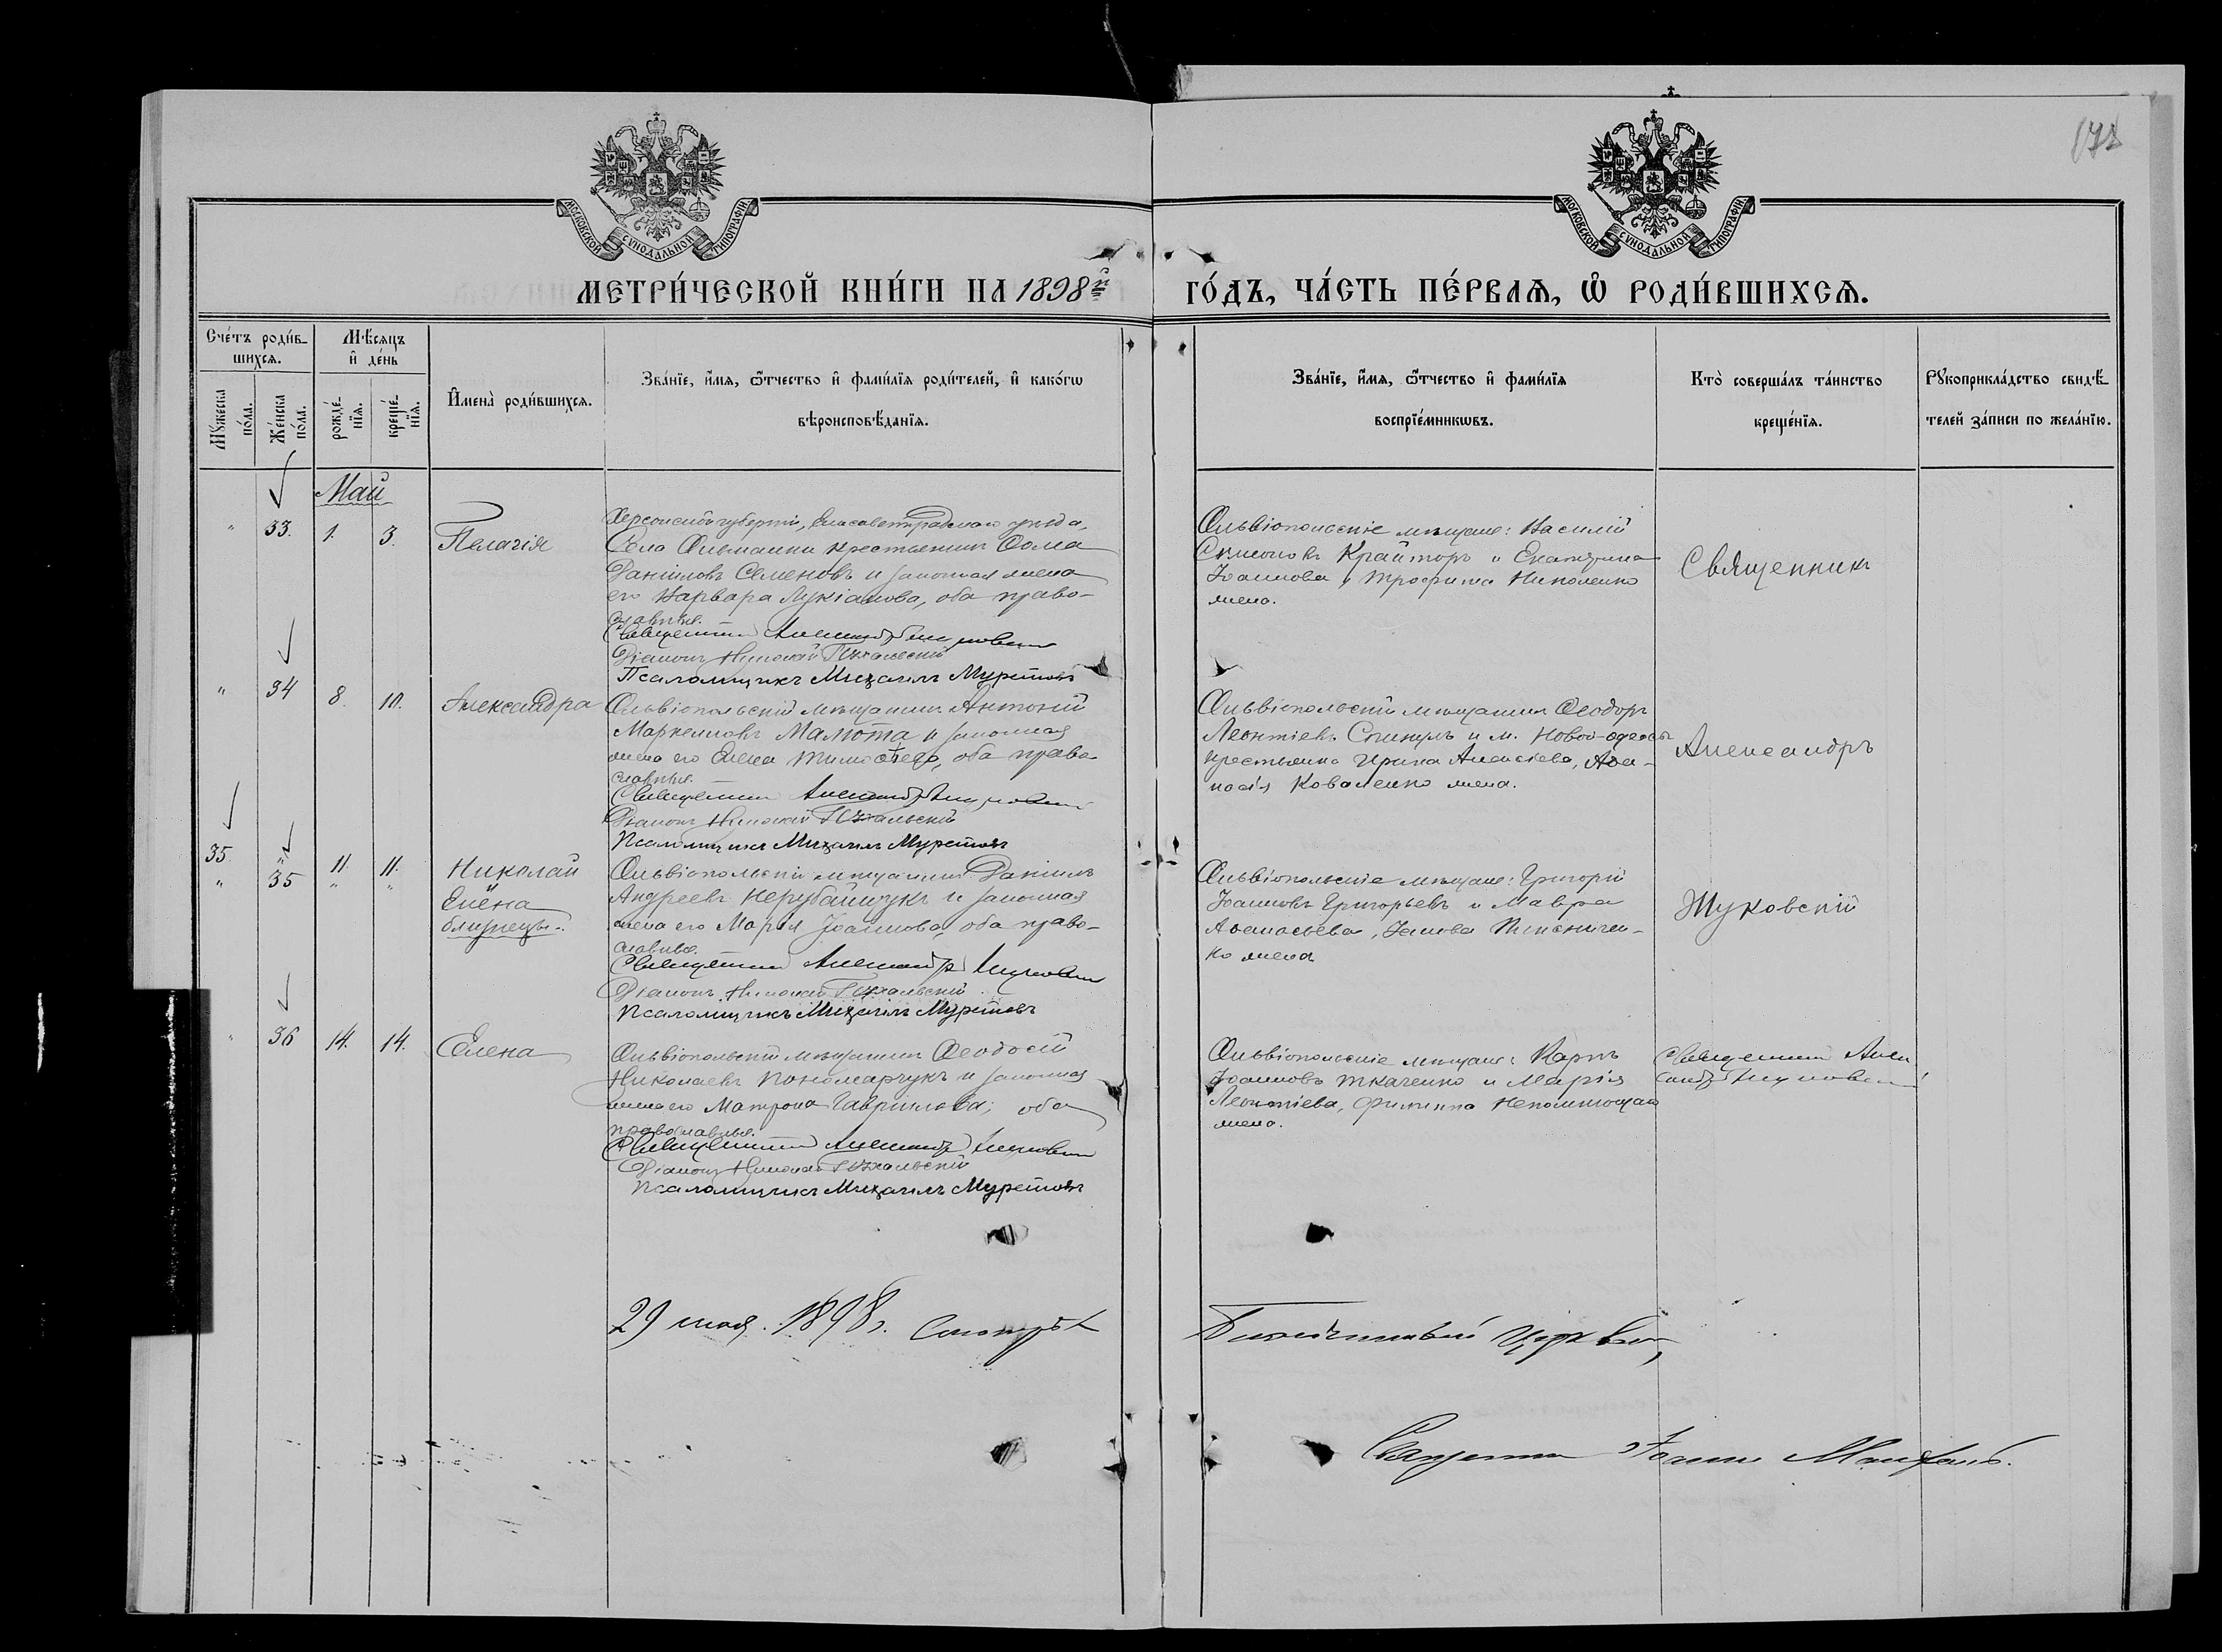 172
МОСКОВСКОЙ СѴНОДАЛЬНОЙ ТИПОГРАФІИ
МОСКОВСКОЙ СѴНОДАЛЬНОЙ ТИПОГРАФІИ
МЕТРИ́ЧЕСКОЙ КНИ́ГИ НА 1898й ГО́ДЪ, ЧА́СТЬ ПЕ́РВАѦ, Ѽ РОДИ́ВШИХСѦ.
Сче́тъ роди́в-
шихсѧ.
Мꙋ́жеска
по́ла.
Же́нска
по́ла.
Мѣ́сѧцъ
и҆ де́нь
рожде́-
нїѧ.
креще́-
нїѧ.
И҆мена̀ роди́вшихсѧ.
Зва́нїе, и҆́мѧ, ѻ҆́тчество и҆ фами́лїѧ роди́телей, и҆ како́гѡ
вѣроисповѣ́данїѧ.
Зва́нїе, и҆́мѧ, ѻ҆́тчество и҆ фами́лїѧ
воспрїе́мникѡвъ.
Кто̀ соверша́лъ та́инство
креще́нїѧ.
Рꙋкоприкла́дство свидѣ́-
телей за́писи по жела́нїю.
Май
" 33. 1. 3. Пелагія
Херсонской губерніи, Елисаветградскаго уѣзда,
Села Ольшанки крестьянинъ Ѳома
Даніиловъ Семеновъ и законная жена
его Варвара Лукіанова, оба право-
славные.
Священникъ Александръ Жуковскій
Діаконъ Николай
Псаломщикъ Михаилъ Муретовъ
Ольвіопольскіе мѣщане: Василій
Симеоновъ Крайторъ и Екатерина
Іоаннова, Трофима Николенко
жена.
Священникъ
" 34 8. 10. Александра
Ольвіопольскій мѣщанинъ Антоній
Маркелловъ Малюта и законная
жена его Елена Тимоѳеева, оба право-
славные.
Священникъ Александръ Жуковскій
Діаконъ Николай
Псаломщикъ Михаилъ Муретовъ
Ольвіопольскій мѣщанинъ Ѳеодоръ
Леонтіевъ и м. Новой-Одессы
крестьянка Ирина Алексіева, Аѳа-
насія Коваленко жена.
Александръ
35. " 11 11. Николай
" 35 " " Елена
близнецы.
Ольвіопольскій мѣщанинъ Даніилъ
Андреевъ Нерубайщукъ и законная
жена его Марія Іоаннова, оба право-
славные.
Священникъ Александръ Жуковскій
Діаконъ Николай
Псаломщикъ Михаилъ Муретовъ
Ольвіопольскіе мѣщане: Григорій
Іоанновъ Григорьевъ и Мавра
Аѳанасьева, Іакова Пшеничен-
ко жена
Жуковскій
" 36 14. 14. Елена
Ольвіопольскій мѣщанинъ Ѳеодосій
Николаевъ Пономарчукъ и законная
жена его Матрона Гавріилова, оба
православные.
Священникъ Александръ Жуковскій
Діаконъ Николай
Псаломщикъ Михаилъ Муретовъ
Ольвіопольскіе мѣщане: Карпъ
Іоанновъ Ткаченко и Марія
Леонтіева, Филиппа Непомнющаго
жена.
Священникъ Алек-
сандръ Жуковскій
29 мая 1898 г. Смотрѣлъ Благочинный церквей,
Священникъ Іоаннъ